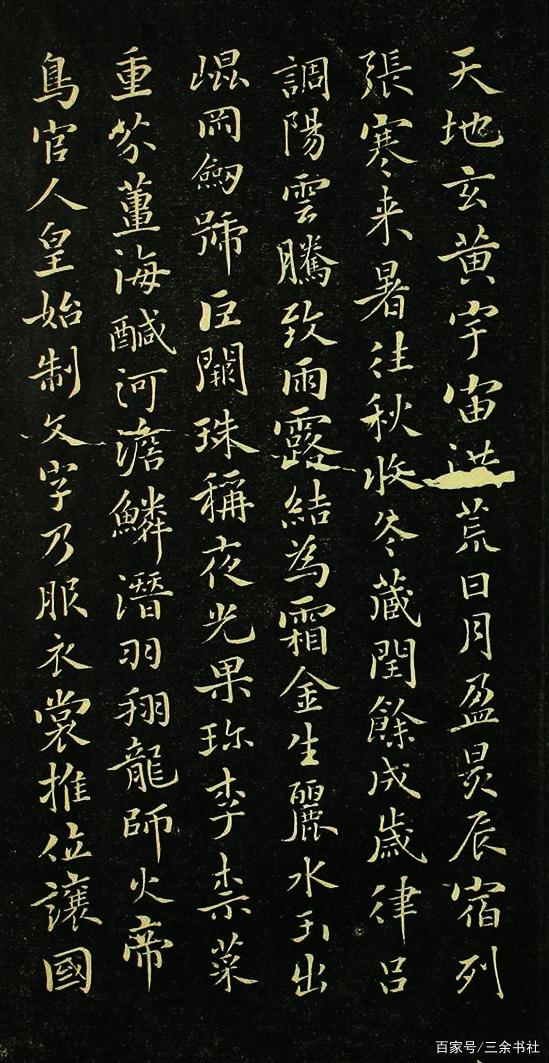 天地玄黃宇宙洪荒日月盈昃辰宿列
張寒来暑往秋收冬藏閏餘成歲律呂
調陽雲騰致雨露結為霜金生麗水玉出
崐岡劒號巨闕珠稱夜光果珎李柰菜
重芥薑海醎河澹鱗潛羽翔龍師火帝
鳥官人皇始制文字乃服衣裳推位讓國
百家号/三余书社